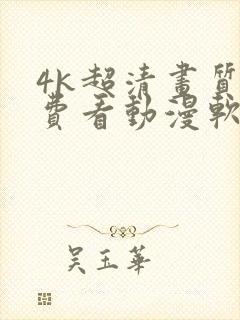 4k超清畫質
費看動漫軟
吳玉華